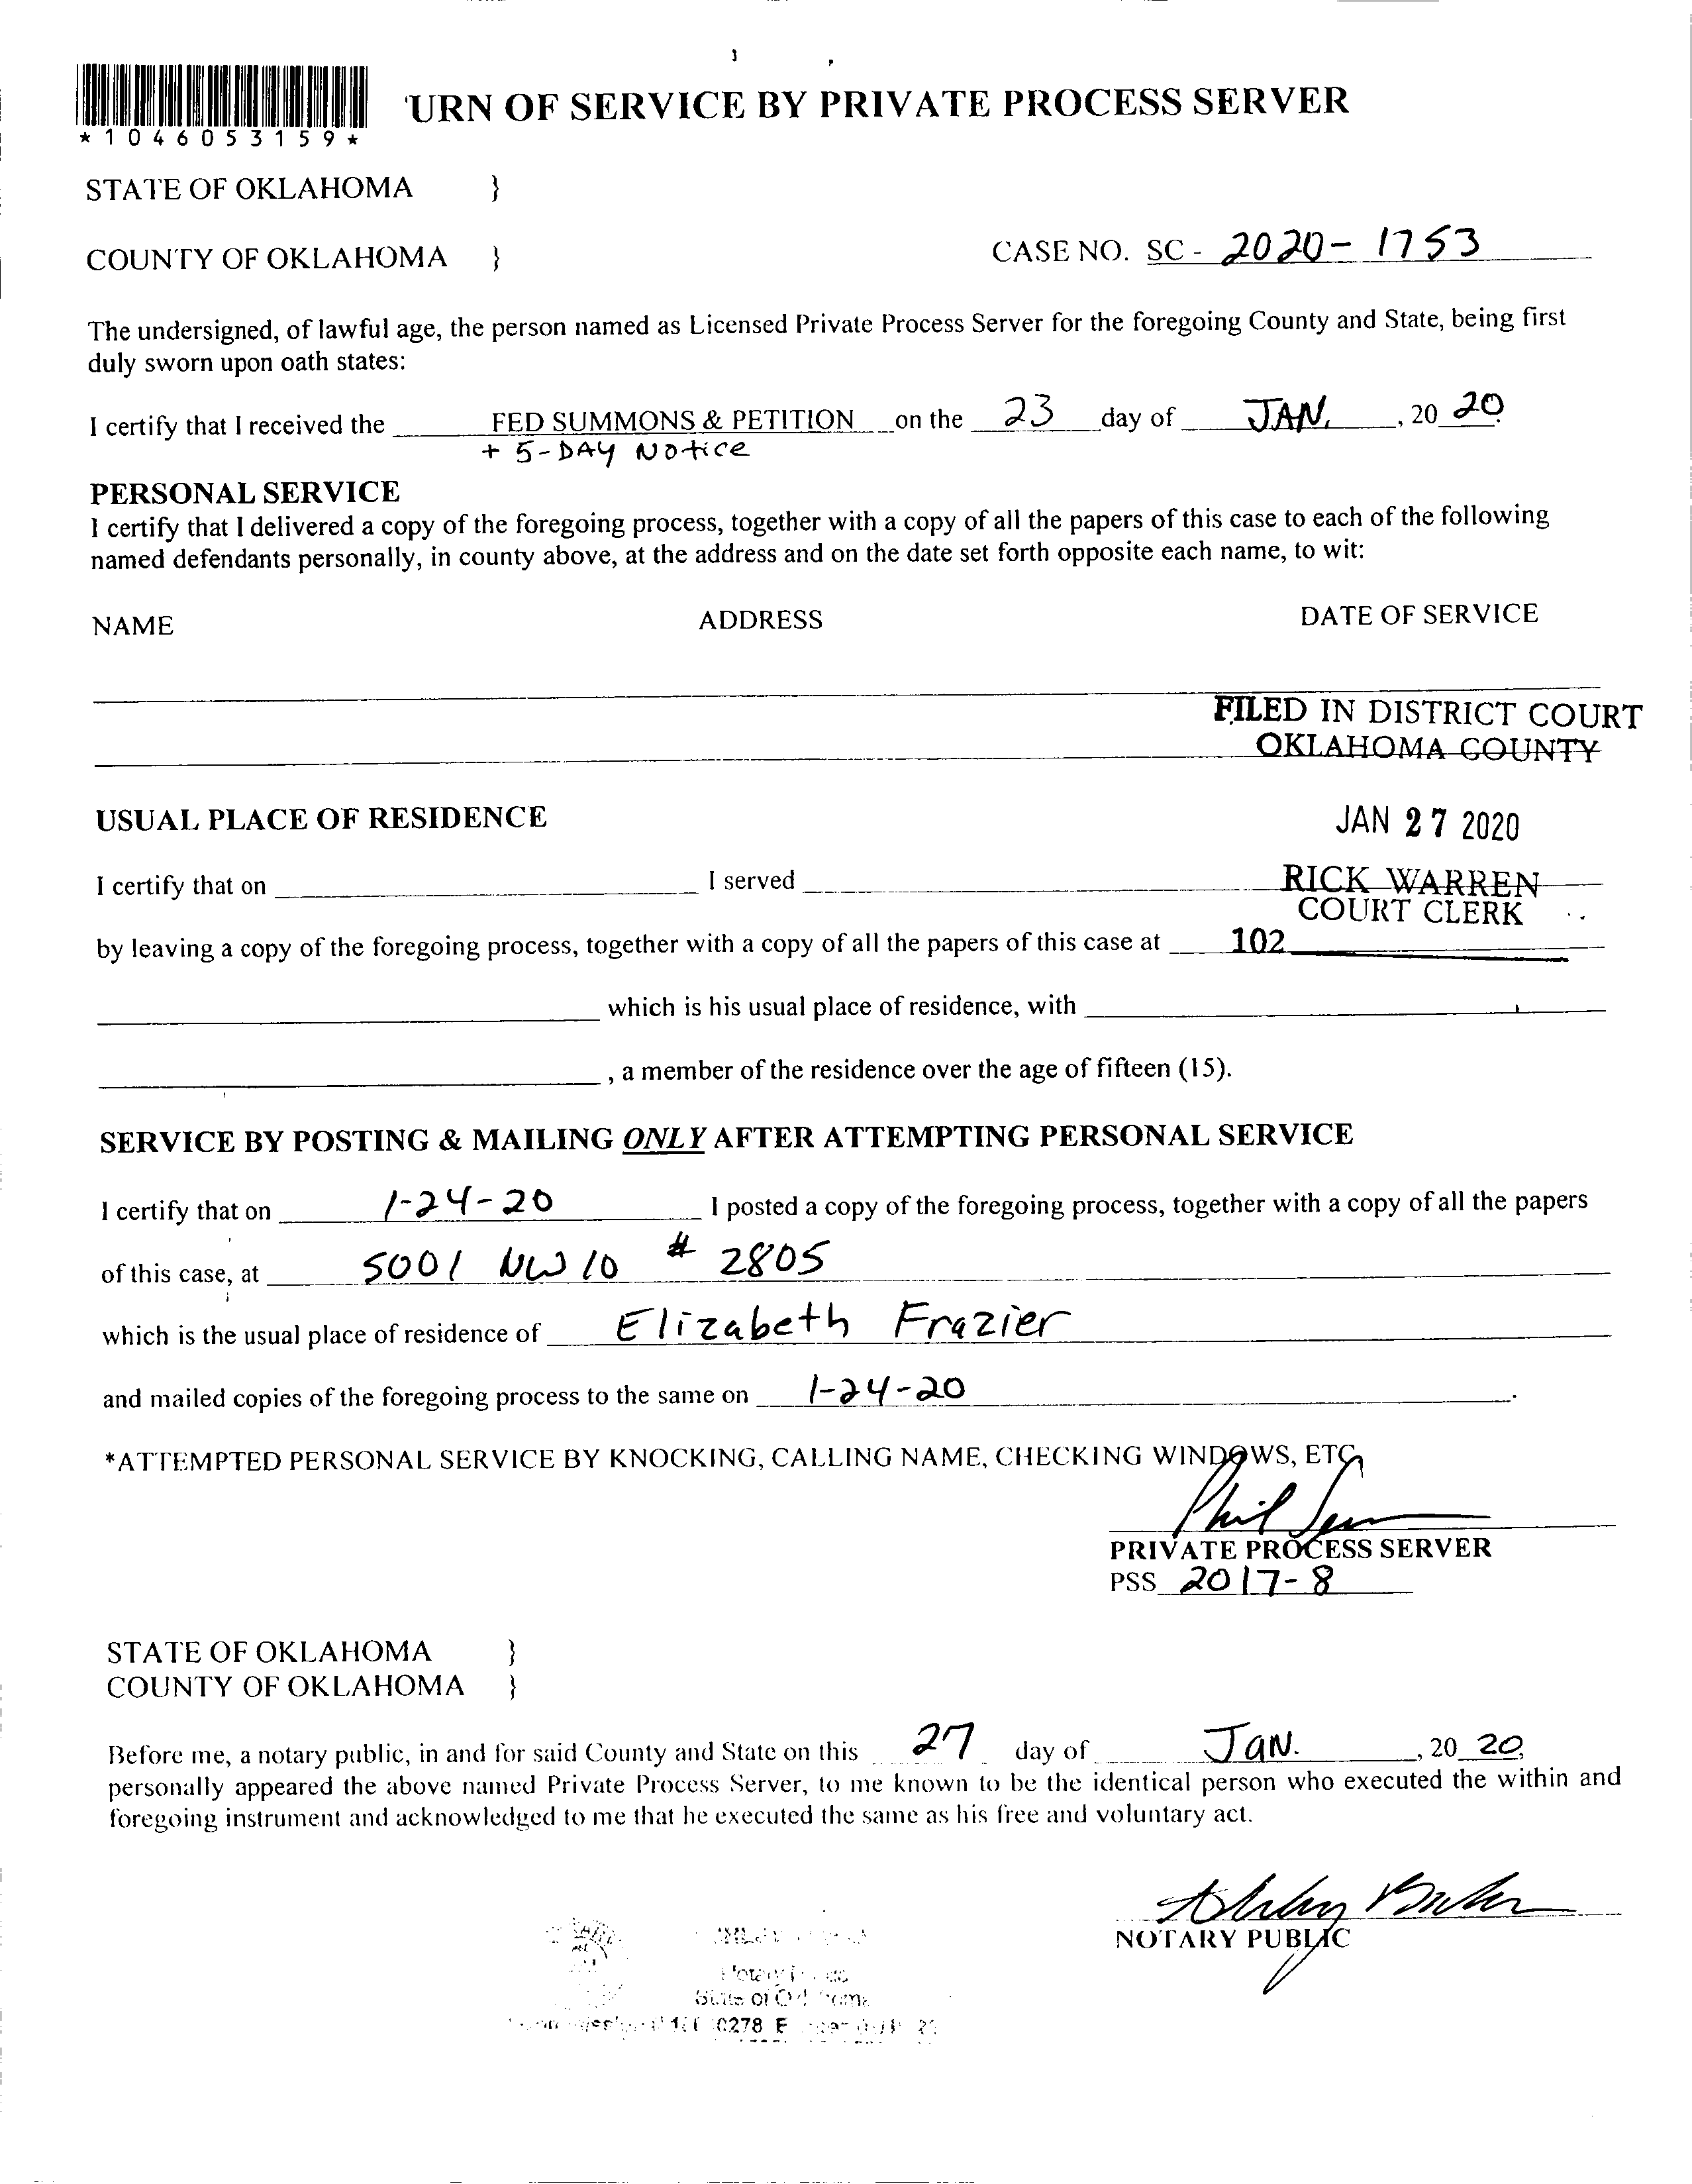 *1046053159*
'URN OF SERVICE BY PRIVATE PROCESS SERVER
STATE OF OKLAHOMA }
COUNTY OF OKLAHOMA } CASE NO. SC - 2020-1753
The undersigned, of lawful age, the person named as Licensed Private Process Server for the foregoing County and State, being first
duly sworn upon oath states:
I certify that I received the FED SUMMONS & PETITION on the 23 day of JAN. , 20 20.
+ 5-DAY Notice
PERSONAL SERVICE
I certify that I delivered a copy of the foregoing process, together with a copy of all the papers of this case to each of the following
named defendants personally, in county above, at the address and on the date set forth opposite each name, to wit:
NAME ADDRESS DATE OF SERVICE
FILED IN DISTRICT COURT
OKLAHOMA COUNTY
USUAL PLACE OF RESIDENCE JAN 27 2020
I certify that on I served RICK WARREN
COURT CLERK
by leaving a copy of the foregoing process, together with a copy of all the papers of this case at 102
which is his usual place of residence, with
, a member of the residence over the age of fifteen (15).
SERVICE BY POSTING & MAILING ONLY AFTER ATTEMPTING PERSONAL SERVICE
I certify that on 1-24-20 I posted a copy of the foregoing process, together with a copy of all the papers
of this case, at 5001 NW 10 # 2805
which is the usual place of residence of Elizabeth Frazier
and mailed copies of the foregoing process to the same on 1-24-20 .
*ATTEMPTED PERSONAL SERVICE BY KNOCKING, CALLING NAME, CHECKING WINDOWS, ETC
Phil
PRIVATE PROCESS SERVER
PSS 2017-8
STATE OF OKLAHOMA }
COUNTY OF OKLAHOMA }
Before me, a notary public, in and for said County and State on this 27 day of JaN. , 20 20,
personally appeared the above named Private Process Server, to me known to be the identical person who executed the within and
foregoing instrument and acknowledged to me that he executed the same as his free and voluntary act.
NOTARY PUBLIC
State of
0278